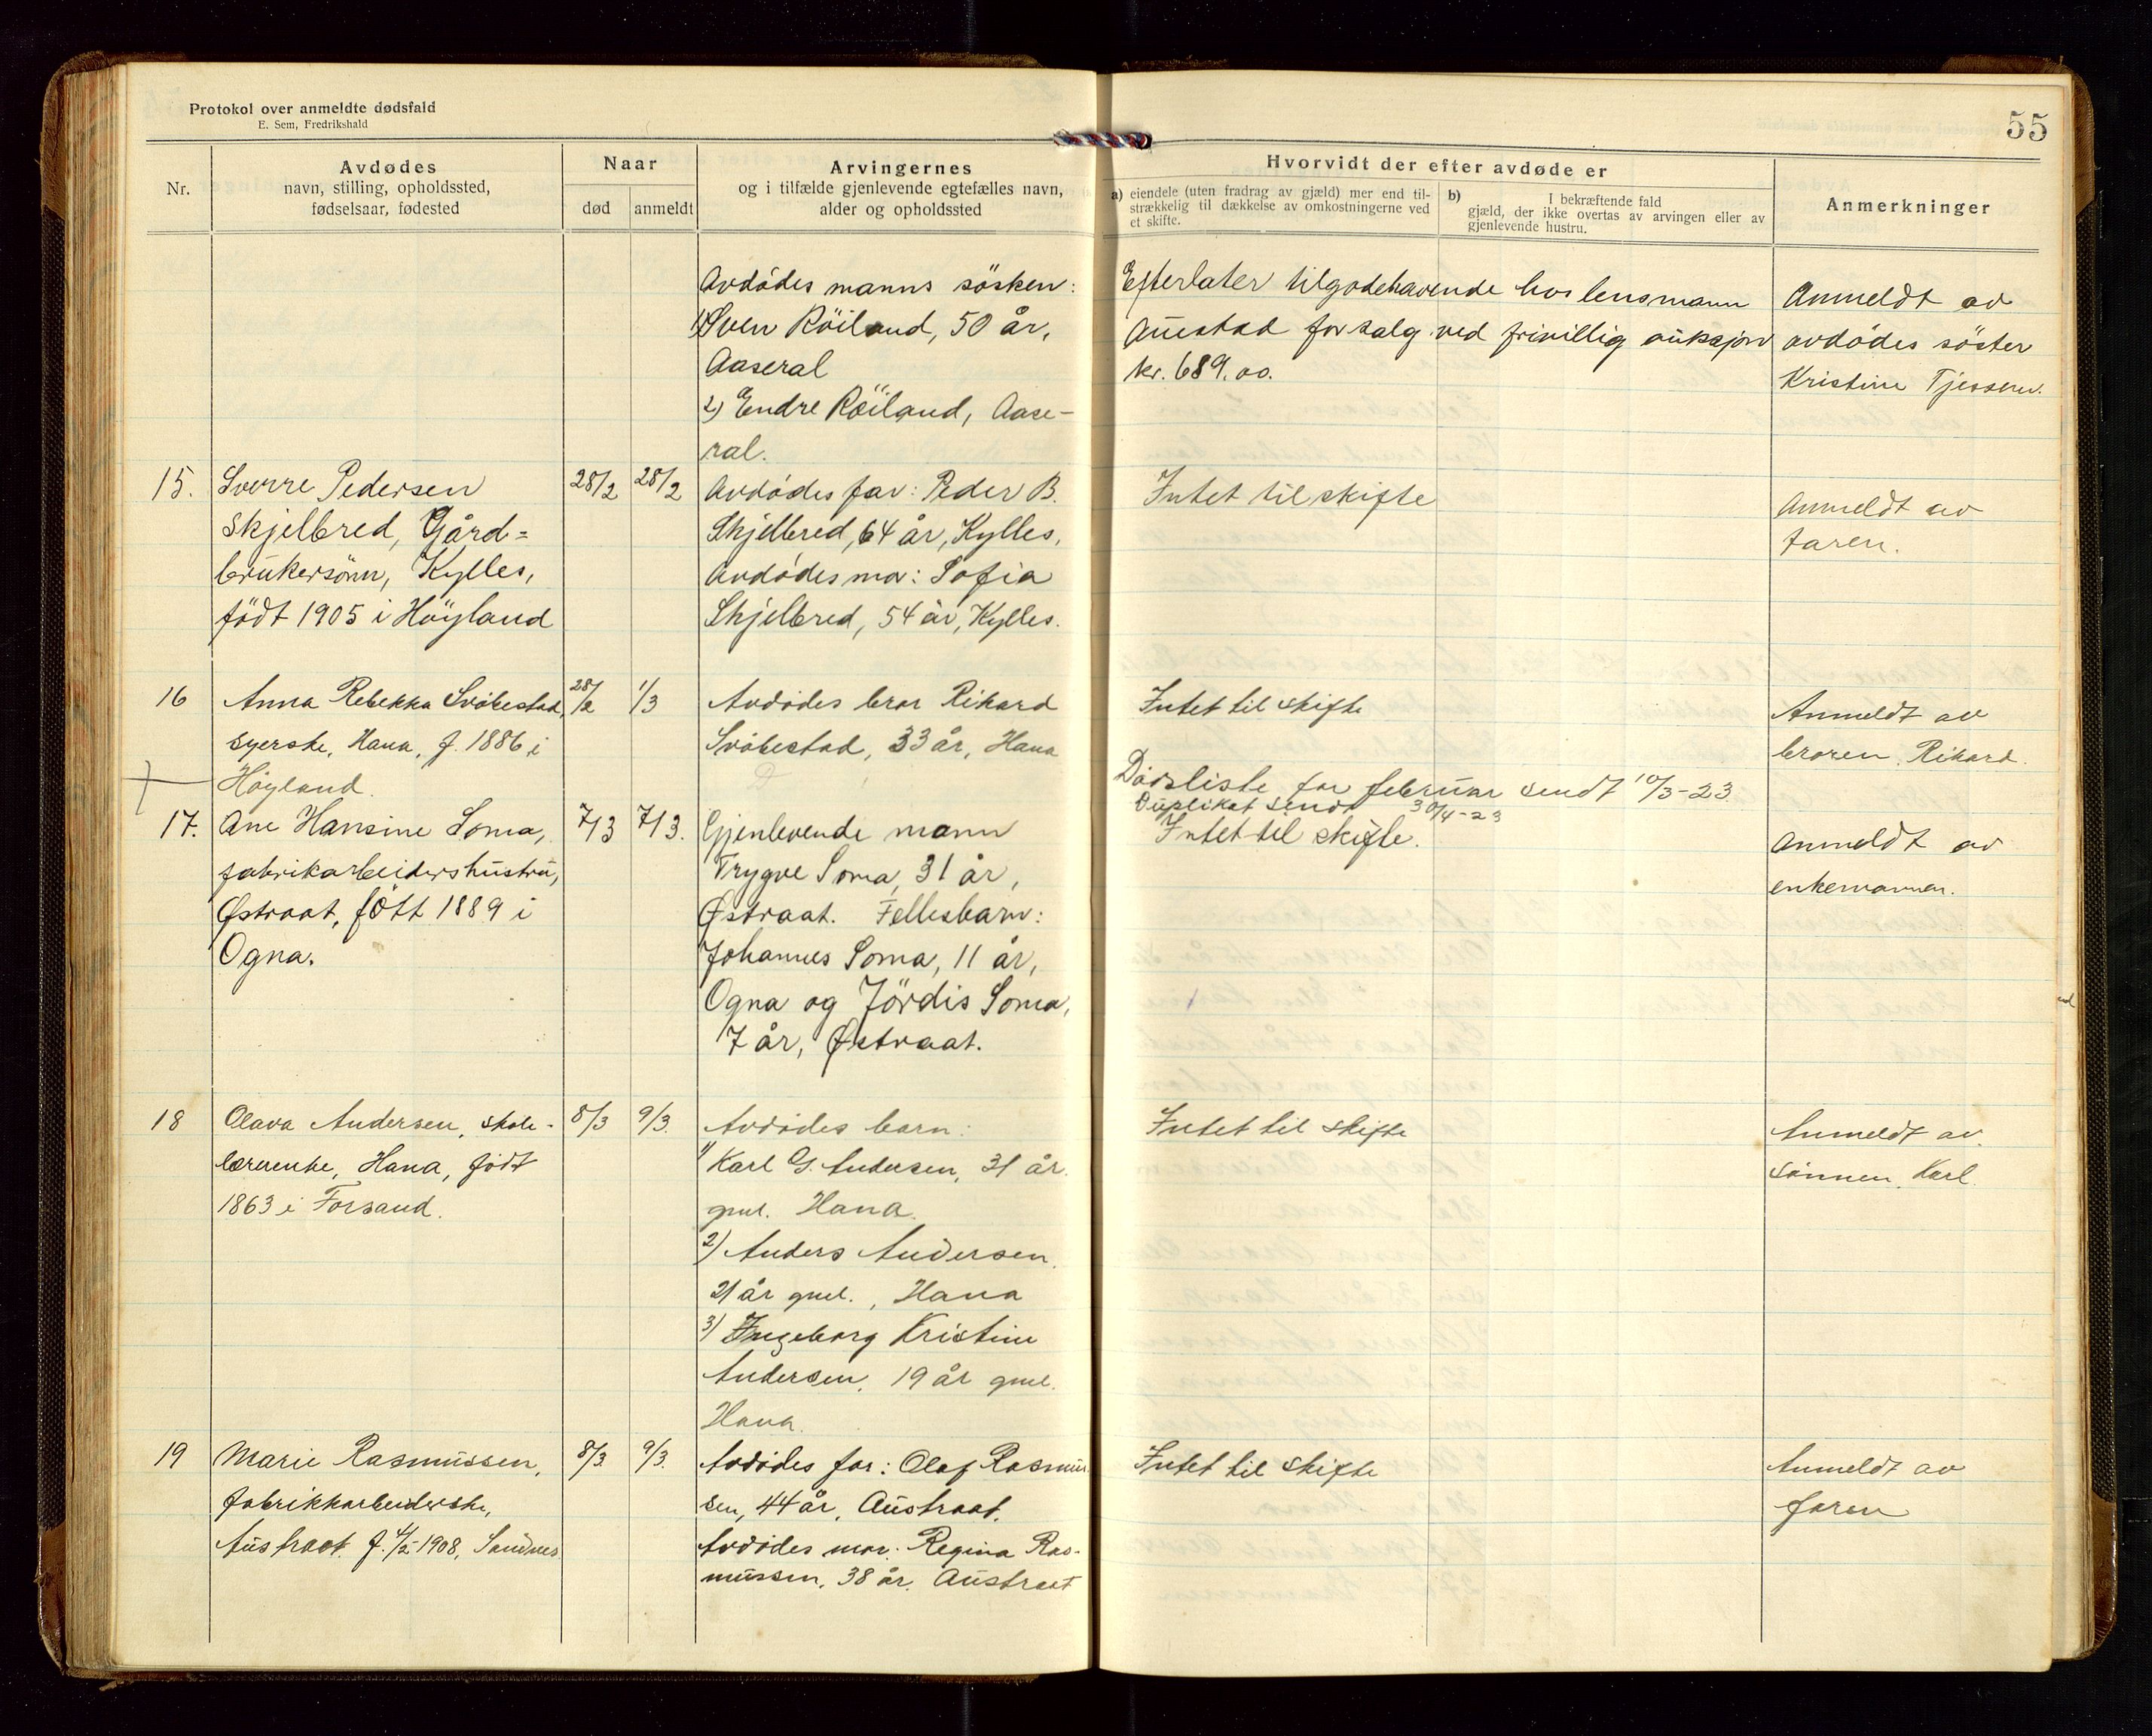 Protokol over anmeldte dødsfald
E. Sem, Fredrikshald
55
Nr.
Avdødes
navn, stilling, opholdssted,
fødselsaar, fødested
Naar
død
anmeldt
Arvingernes
og i tilfælde gjenlevende egtefælles navn,
alder og opholdssted
Hvorvidt der efter avdøde er
a) eiendele (uten fradrag av gjæld) mer end til-
strækkelig til dækkelse av omkostningerne ved
et skifte.
b) I bekræftende fald
gjæld, der ikke overtas av arvingen eller av
gjenlevende hustru.
Anmerkninger
Avdödes manns sösken:
1) Sven Röiland, 50 år,
Aaseral
2) Endre Röiland, Aase-
ral.
Efterlater tilgodehavende hos lensmann
Auestad for salg ved frivillig auksjon
kr. 689.00.
Anmeldt av
avdödes söster
Kristine Tjessem.
15.
Sverre Pedersen
Skjelbred, Gård=
brukersönn, Kylles,
födt 1905 i Höyland
28/2
28/2
Avdödes far: Peder B.
Skjelbred, 64 år, Kylles,
Avdödes mor: Sofia
Skjelbred, 54 år, Kylles.
Intet til skifte
Anmeldt av
faren.
16
Anna Rebekka Svöbestad,
syerske, Hana, f. 1886 i
Höyland.
28/2
1/3
Avdödes bror Rikard
Svöbestad, 33 år, Hana
Intet til skifte
Anmeldt av
broren, Rikard.
Dödsliste for februar sendt 10/3-23
Duplikat sendt 30/4-23
17.
Ane Hansine Soma,
fabrikarbeidershustru,
Østraat, fött 1889 i
Ogna.
7/3
7/3.
Gjenlevende mann
Trygve Soma, 31 år,
Østraat. Fellesbarn:
Johannes Soma, 11 år,
Ogna og Jördis Soma,
7 år, Østraat.
Intet til skifte.
Anmeldt av
enkemannen.
18
Olava Andersen, skole-
lærerenke, Hana, födt
1863 i Forsand.
8/3
9/3.
Avdödes barn:
1) Karl G. Andersen, 31 år
gml. Hana.
2) Anders Andersen,
21 år gml., Hana
3) Ingeborg Kristine
Andersen, 19 år gml.
Hana.
Intet til skifte
Anmeldt av
sönnen, Karl.
19
Marie Rasmussen,
fabrikkarbeiderske,
Austraat, f. 4/5 1908, Sandnes.
8/3
9/3.
Avdödes far: Olaf Rasmus-
sen, 44 år, Austraat.
Avdödes mor: Regina Ras-
mussen, 38 år, Austraat
Intet til skifte
Anmeldt av
faren